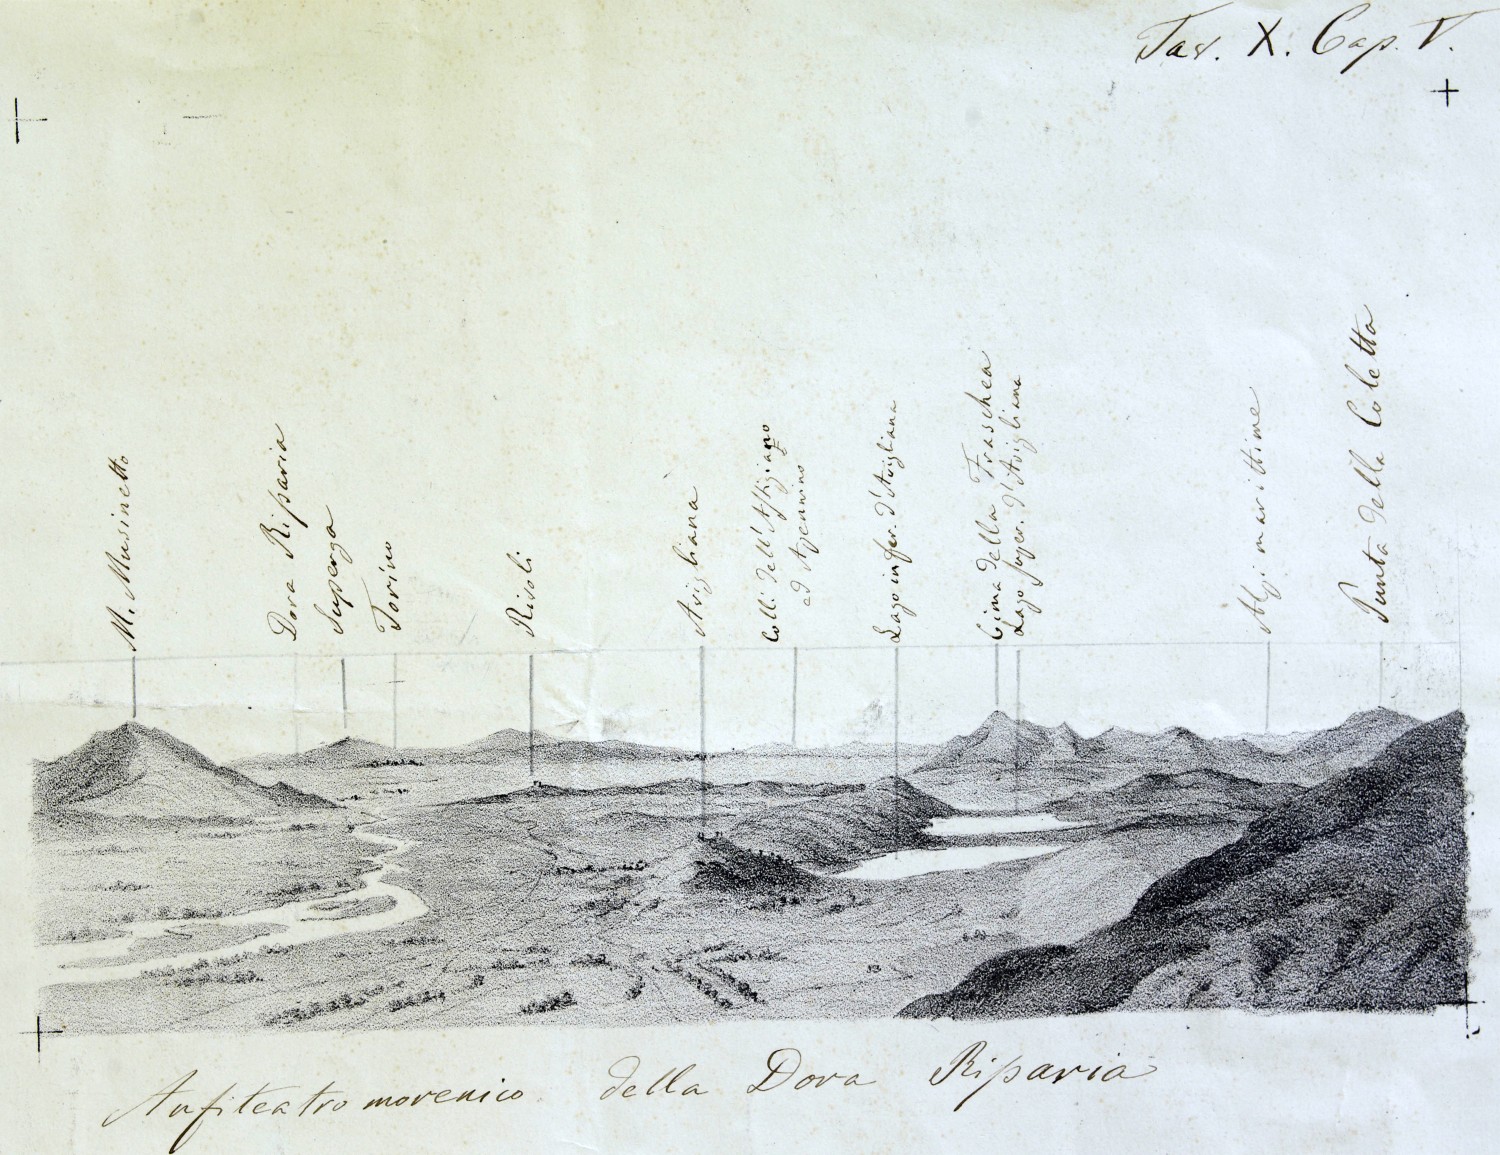 Tav. X. Cap. V.
M. Musinetto
Dora Riparia
Superga
Torino
Rivoli
Avigliana
Colli dell'Astigiano
ed Apennino
Lago infer. d'Avigliana
Cima della Fraschea
Lago super. d'Avigliana
Alpi marittime
Punta della Coletta
Anfiteatro morenico della Dora Riparia